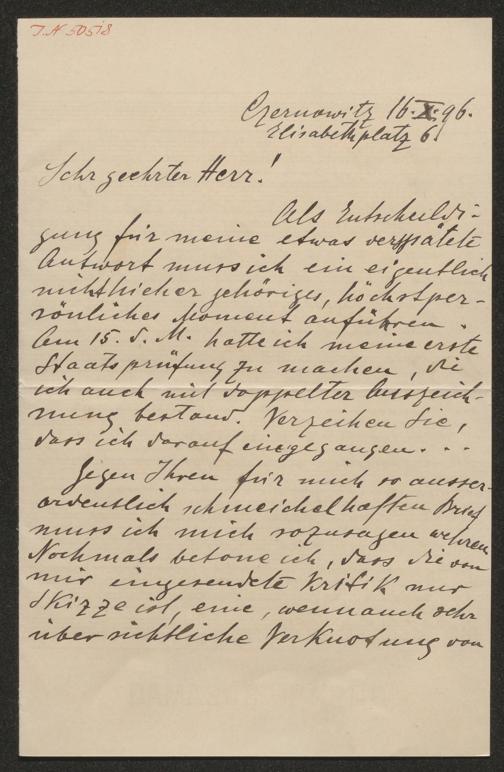 J. N 50518
Czernowitz 16. X. 96.
Elisabethplatz 6.
Sehr geehrter Herr!
Als Entschuldi-
gung für meine etwas verspätete
Antwort muss ich ein eigentlich
nicht hieher gehöriges, höchstper-
sönliches Moment anführen.
Am 15. d. M. hatte ich meine erste
Staatsprüfung zu machen, die
ich auch mit doppelter Auszeich-
nung bestand. Verzeihen Sie,
dass ich darauf eingegangen. . .
Gegen Ihren für mich so ausser-
ordentlich schmeichelhaften Brief
muss ich mich sozusagen wehren.
Nochmals betone ich, dass die von
mir eingesendete Kritik nur
Skizze ist, eine, wenn auch sehr
übersichtliche Verknotung von